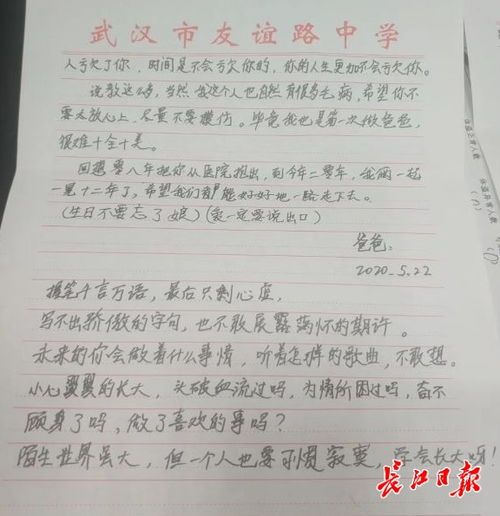 武汉市友谊路中学
人亏欠了你,时间是不会亏欠你的,你的人生更加不会亏欠你。
说教这么多,当然我这个人也自然有很多毛病,希望你不
要太放心上,尽量不要模仿。毕竟我也是第一次做爸爸,
很难十全十美。
回想零八年把你从医院抱出,到今年二零年,我俩一起
一黑十二年了,希望我们有能好好地一路走下去。
(生日不要忘了娘)(爱一定要说出口)
爸爸:
2020.5.22
提笔千言万语,最后只剩心虚,
写不出骄傲的字句,也不敢展露满怀的期许。
未来的你会做着什么事情,听着怎样的歌曲,不敢想。
小心翼翼的长大,头破血流过吗,为情所困过吗,奋不
顾身了吗,做了喜欢的事吗?
陌生世界虽大,但一个人也要可爱寂寞,学会长大呀!
长江日报